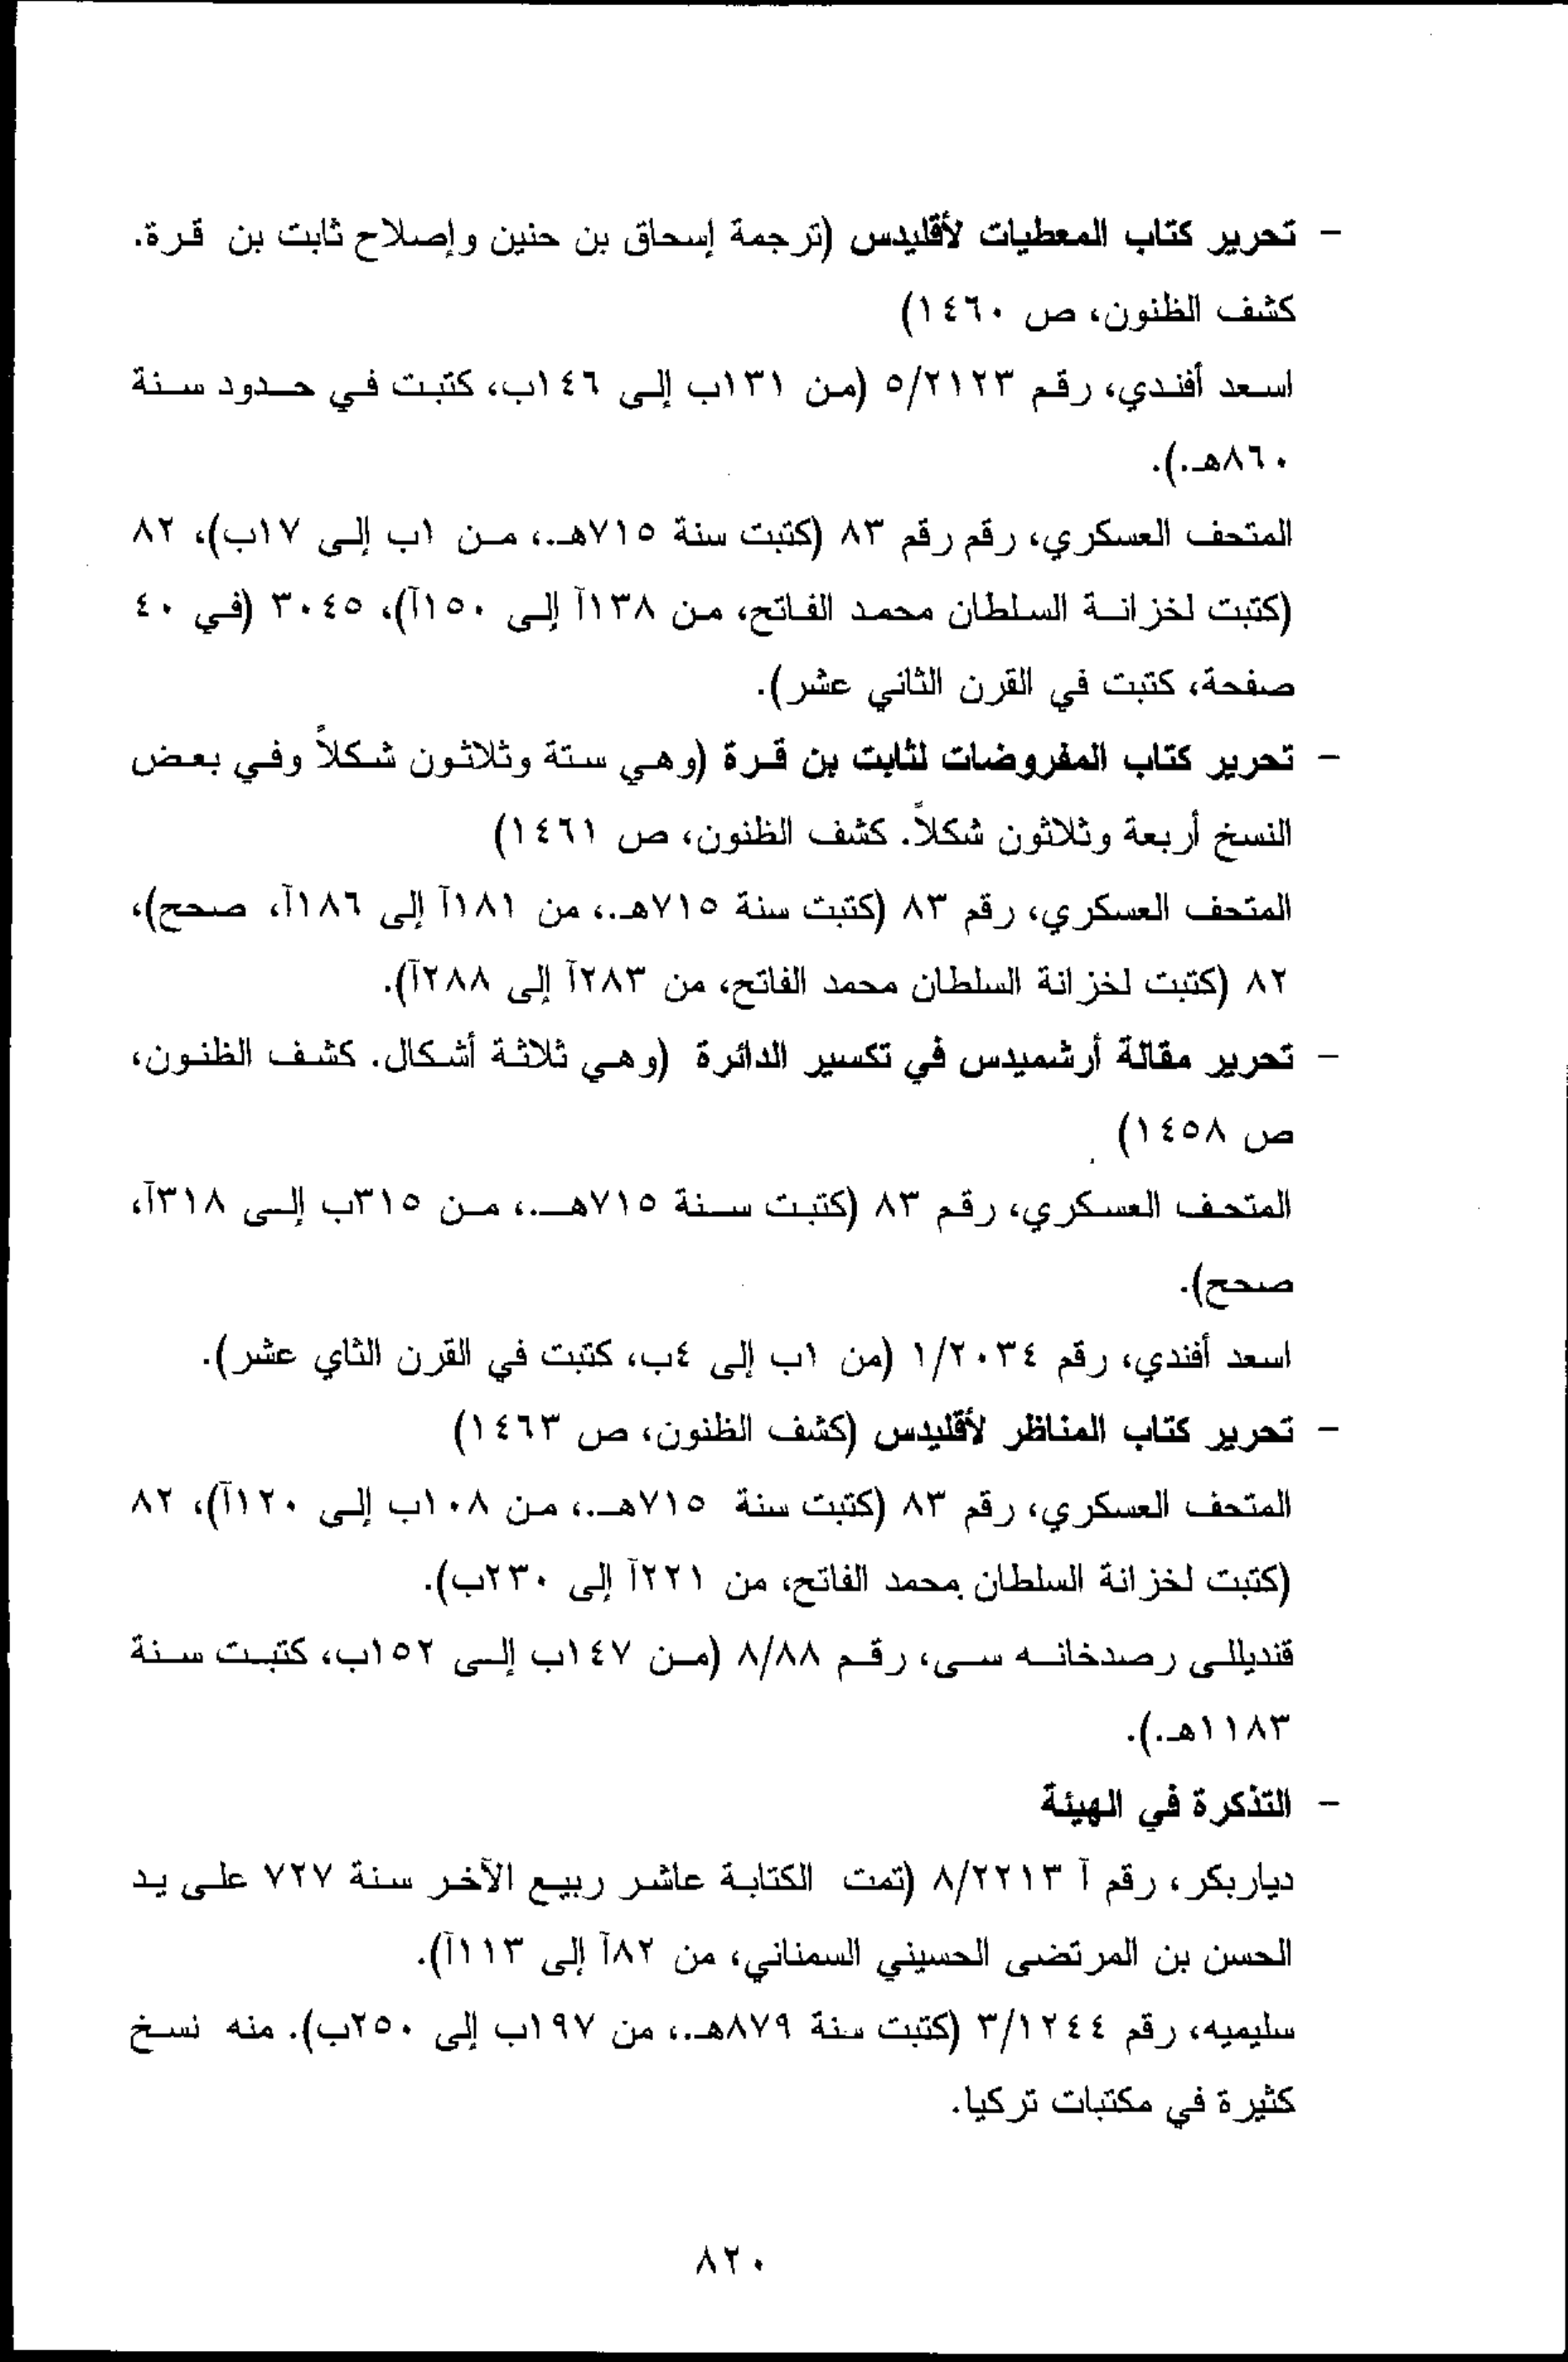 - تحرير كتاب المعطيات لأقليدس (ترجمة إسحاق بن حنين وإصلاح ثابت بن قرة.
كشف الظنون، ص ١٤٦٠)
اسعد أفندي، رقم ٥/٢١٢٣ (من ١٣١ب إلى ١٤٦ب، كتبت في حدود سنة
٨٦٠هـ.).
المتحف العسكري، رقم رقم ٨٣ (كتبت سنة ٧١٥هـ.، من ١ب إلى ١٧ب)، ٨٢
(كتبت لخزانة السلطان محمد الفاتح، من ١٣٨آ إلى ١٥٠آ)، ٣٠٤٥ (في ٤٠
صفحة، كتبت في القرن الثاني عشر).
- تحرير كتاب المفروضات لثابت بن قرة (وهي ستة وثلاثون شكلاً وفي بعض
النسخ أربعة وثلاثون شكلاً. كشف الظنون، ص ١٤٦١)
المتحف العسكري، رقم ٨٣ (كتبت سنة ٧١٥هـ.، من ١٨١آ إلى ١٨٦آ، صحح)،
٨٢ (كتبت لخزانة السلطان محمد الفاتح، من ٢٨٣آ إلى ٢٨٨آ).
- تحرير مقالة أرشميدس في تكسير الدائرة (وهي ثلاثة أشكال. كشف الظنون،
ص ١٤٥٨)
المتحف العسكري، رقم ٨٣ (كتبت سنة ٧١٥هـ.، من ٣١٥ب إلى ٣١٨آ،
صحح).
اسعد أفندي، رقم ١/٢٠٣٤ (من ١ب إلى ٤ب، كتبت في القرن الثاي عشر).
- تحرير كتاب المناظر لأقليدس (كشف الظنون، ص ١٤٦٣)
المتحف العسكري، رقم ٨٣ (كتبت سنة ٧١٥هـ.، من ١٠٨ب إلى ١٢٠آ)، ٨٢
(كتبت لخزانة السلطان محمد الفاتح، من ٢٢١آ إلى ٢٣٠ب).
قنديللى رصدخانه سى، رقم ٨/٨٨ (من ١٤٧ب إلى ١٥٢ب، كتبت سنة
١١٨٣هـ.).
- التذكرة في الهيئة
دياربكر، رقم آ ٨/٢٢١٣ (تمت الكتابة عاشر ربيع الآخر سنة ٧٢٧ على يد
الحسن بن المرتضى الحسيني السمناني، من ٨٢آ إلى ١١٣آ).
سليميه، رقم ٣/١٢٤٤ (كتبت سنة ٨٧٩هـ.، من ١٩٧ب إلى ٢٥٠ب). منه نسخ
كثيرة في مكتبات تركيا.
٨٢٠